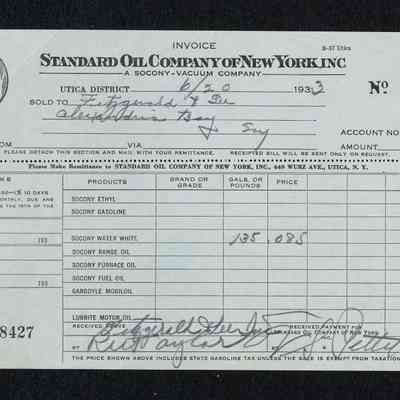 INVOICE
S-37 Utica
STANDARD OIL COMPANY OF NEW YORK, INC
A SOCONY-VACUUM COMPANY
UTICA DISTRICT 6/20 1933 No
SOLD TO Fitzgerald & Lee
Alexandria Bay NY
ACCOUNT NO
OM VIA
PLEASE DETACH THIS SECTION AND MAIL WITH YOUR REMITTANCE. RECEIPTED BILL WILL BE SENT ONLY ON REQUEST.
Please Make Remittance to STANDARD OIL COMPANY OF NEW YORK, INC., 448 WURZ AVE., UTICA, N. Y.
10 DAYS
MONTHLY, DUE AND
THE 15TH OF THE
PRODUCTS BRAND OR GRADE GALS. OR POUNDS PRICE
SOCONY ETHYL
SOCONY GASOLINE
193 SOCONY WATER WHITE 135 .085
SOCONY RANGE OIL
193 SOCONY FURNACE OIL
SOCONY FUEL OIL
GARGOYLE MOBILOIL
LUBRITE MOTOR OIL
8427
RECEIVED ABOVE RECEIVED PAYMENT FOR
STANDARD OIL COMPANY OF NEW YORK INC.
Fitzgerald & Lee Inc
BY Taylor BY
THE PRICE SHOWN ABOVE INCLUDES STATE GASOLINE TAX UNLESS THE SALE IS EXEMPT FROM